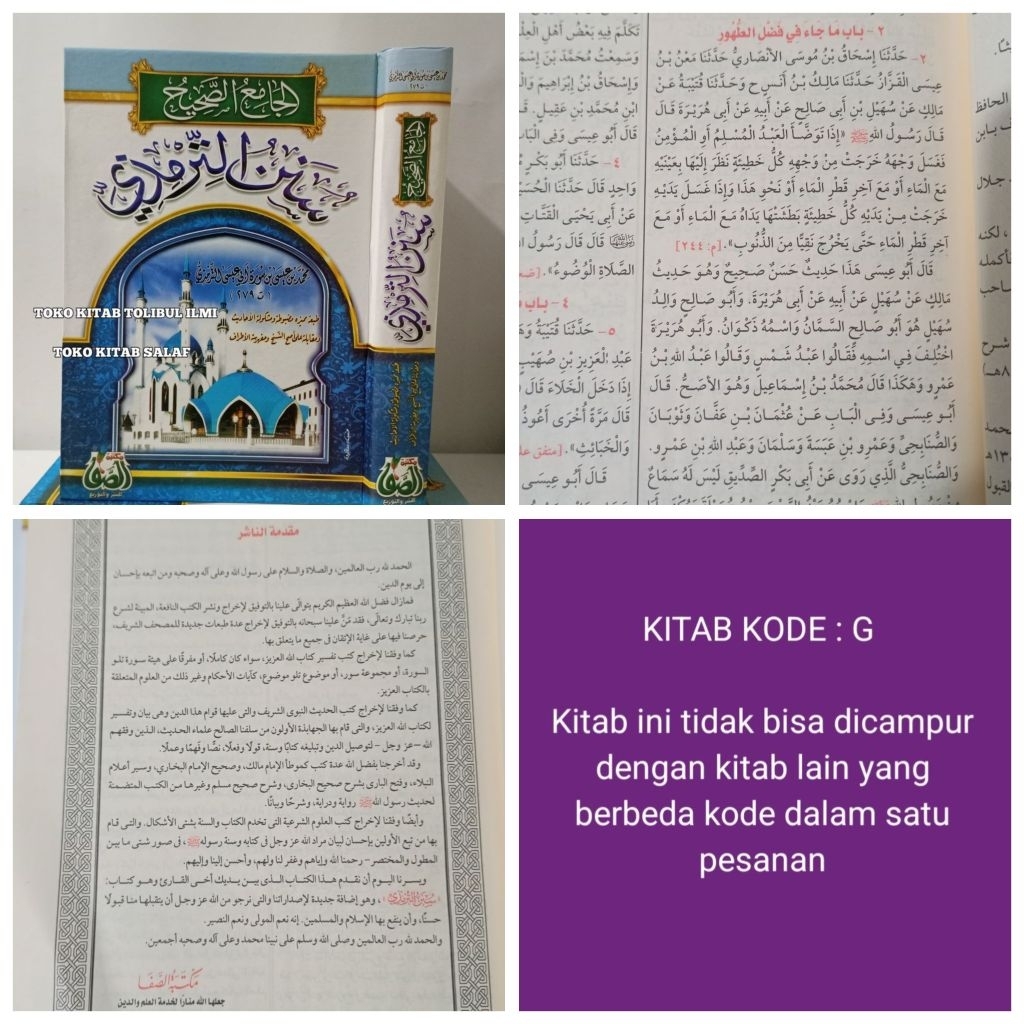 الجامع الصحيح
سنن الترمذي
محمد بن عيسى بن سورة أبي عيسى الترمذي
(ت ٢٧٩)
TOKO KITAB TOLIBUL ILMI
طبعة مميزة مضبوطة ومشكولة الأحاديث
TOKO KITAB SALAF
مكتبة
الصفا
للنشر والتوزيع
الجامع الصحيح
سنن الترمذي
مكتبة
الصفا
للنشر والتوزيع
٢ - باب مَا جَاءَ فِي فَضْلِ الطُّهُورِ
٢- حَدَّثَنَا إِسْحَاقُ بْنُ مُوسَى الأَنْصَارِيُّ حَدَّثَنَا مَعْنُ بْنُ
عِيسَى الْقَزَّازُ حَدَّثَنَا مَالِكُ بْنُ أَنَسٍ ح وَحَدَّثَنَا قُتَيْبَةُ عَنْ
مَالِكٍ عَنْ سُهَيْلِ بْنِ أَبِي صَالِحٍ عَنْ أَبِيهِ عَنْ أَبِي هُرَيْرَةَ قَالَ
قَالَ رَسُولُ اللهِ ﷺ «إِذَا تَوَضَّأَ الْعَبْدُ الْمُسْلِمُ أَوِ الْمُؤْمِنُ
فَغَسَلَ وَجْهَهُ خَرَجَتْ مِنْ وَجْهِهِ كُلُّ خَطِيئَةٍ نَظَرَ إِلَيْهَا بِعَيْنَيْهِ
مَعَ الْمَاءِ أَوْ مَعَ آخِرِ قَطْرِ الْمَاءِ أَوْ نَحْوِ هَذَا وَإِذَا غَسَلَ يَدَيْهِ
خَرَجَتْ مِنْ يَدَيْهِ كُلُّ خَطِيئَةٍ بَطَشَتْهَا يَدَاهُ مَعَ الْمَاءِ أَوْ مَعَ
آخِرِ قَطْرِ الْمَاءِ حَتَّى يَخْرُجَ نَقِيًّا مِنَ الذُّنُوبِ». [م: ٢٤٤]
قَالَ أَبُو عِيسَى هَذَا حَدِيثٌ حَسَنٌ صَحِيحٌ وَهُوَ حَدِيثُ
مَالِكٍ عَنْ سُهَيْلٍ عَنْ أَبِيهِ عَنْ أَبِي هُرَيْرَةَ. وَأَبُو صَالِحٍ وَالِدُ
سُهَيْلٍ هُوَ أَبُو صَالِحٍ السَّمَّانُ وَاسْمُهُ ذَكْوَانُ. وَأَبُو هُرَيْرَةَ
اخْتُلِفَ فِي اسْمِهِ فَقَالُوا عَبْدُ شَمْسٍ وَقَالُوا عَبْدُ اللهِ بْنُ
عَمْرٍو وَهَكَذَا قَالَ مُحَمَّدُ بْنُ إِسْمَاعِيلَ وَهُوَ الأَصَحُّ. قَالَ
أَبُو عِيسَى وَفِي الْبَابِ عَنْ عُثْمَانَ بْنِ عَفَّانَ وَثَوْبَانَ
وَالصُّنَابِحِيِّ وَعَمْرِو بْنِ عَبَسَةَ وَسَلْمَانَ وَعَبْدِ اللهِ بْنِ عَمْرٍو.
وَالصُّنَابِحِيُّ الَّذِي رَوَى عَنْ أَبِي بَكْرٍ الصِّدِّيقِ لَيْسَ لَهُ سَمَاعٌ
تَكَلَّمَ فِيهِ بَعْضُ أَهْلِ
وَسَمِعْتُ مُحَمَّدَ بْنَ
وَإِسْحَاقُ بْنُ إِبْرَاهِيمَ
ابْنِ مُحَمَّدِ بْنِ عَقِيلٍ.
قَالَ أَبُو عِيسَى وَفِي
٤- حَدَّثَنَا أَبُو بَكْرٍ
وَاحِدٍ قَالَ حَدَّثَنَا
عَنْ أَبِي يَحْيَى الْقَتَّاتِ
قَالَ قَالَ رَسُولُ
الصَّلاَةِ الْوُضُوءُ».
٤ - باب
٥- حَدَّثَنَا قُتَيْبَةُ
عَبْدِ الْعَزِيزِ بْنِ صُهَيْبٍ
إِذَا دَخَلَ الْخَلاَءَ قَالَ
قَالَ مَرَّةً أُخْرَى أَعُوذُ
وَالْخَبَائِثِ». [متفق
قَالَ أَبُو عِيسَى
مقدمة الناشر
الحمد لله رب العالمين، والصلاة والسلام على رسول الله وعلى آله وصحبه ومن اتبعه بإحسان
إلى يوم الدين.
فمازال فضل الله العظيم الكريم يتوالى علينا بالتوفيق لإخراج ونشر الكتب النافعة، المبينة لشرع
ربنا تبارك وتعالى، فقد منَّ علينا سبحانه بالتوفيق لإخراج عدة طبعات جديدة للمصحف الشريف،
حرصنا فيها على غاية الإتقان في جميع ما يتعلق بها.
كما وفقنا لإخراج كتب تفسير كتاب الله العزيز، سواء كان كاملًا، أو مفرقًا على هيئة سورة تلو
السورة، أو مجموعة سور، أو موضوع تلو موضوع، كآيات الأحكام وغير ذلك من العلوم المتعلقة
بالكتاب العزيز.
كما وفقنا لإخراج كتب الحديث النبوى الشريف والتى عليها قوام هذا الدين وهى بيان وتفسير
لكتاب الله العزيز، والتى قام بها الجهابذة الأولون من سلفنا الصالح علماء الحديث، الذين وفقهم
الله -عز وجل - لتوصيل الدين وتبليغه كتابًا وسنة، قولًا وفعلًا، نصًّا وفهمًا وعملًا.
وقد أخرجنا بفضل الله عدة كتب كموطأ الإمام مالك، وصحيح الإمام البخاري، وسير أعلام
النبلاء، وفتح البارى بشرح صحيح البخارى، وشرح صحيح مسلم وغيرها من الكتب المتضمنة
لحديث رسول الله ﷺ رواية ودراية، وشرحًا وبيانًا.
وأيضًا وفقنا لإخراج كتب العلوم الشرعية التى تخدم الكتاب والسنة بشتى الأشكال. والتى قام
بها من تبع الأولين بإحسان لبيان مراد الله عز وجل فى كتابه وسنة رسوله ﷺ، فى صور شتى ما بين
المطول والمختصر - رحمنا الله وإياهم وغفر لنا ولهم، وأحسن إلينا وإليهم.
ويسرنا اليوم أن نقدم هذا الكتاب الذى بين يديك أخى القارئ وهو كتاب:
(سنن الترمذي)، وهو إضافة جديدة لإصداراتنا والتى نرجو من الله عز وجل أن يتقبلها منا قبولًا
حسنًا، وأن ينفع بها الإسلام والمسلمين. إنه نعم المولى ونعم النصير.
والحمد لله رب العالمين وصلى الله وسلم على نبينا محمد وعلى آله وصحبه أجمعين.
مكتبة الصفا
جعلها الله منارًا لخدمة العلم والدين
KITAB KODE : G
Kitab ini tidak bisa dicampur
dengan kitab lain yang
berbeda kode dalam satu
pesanan